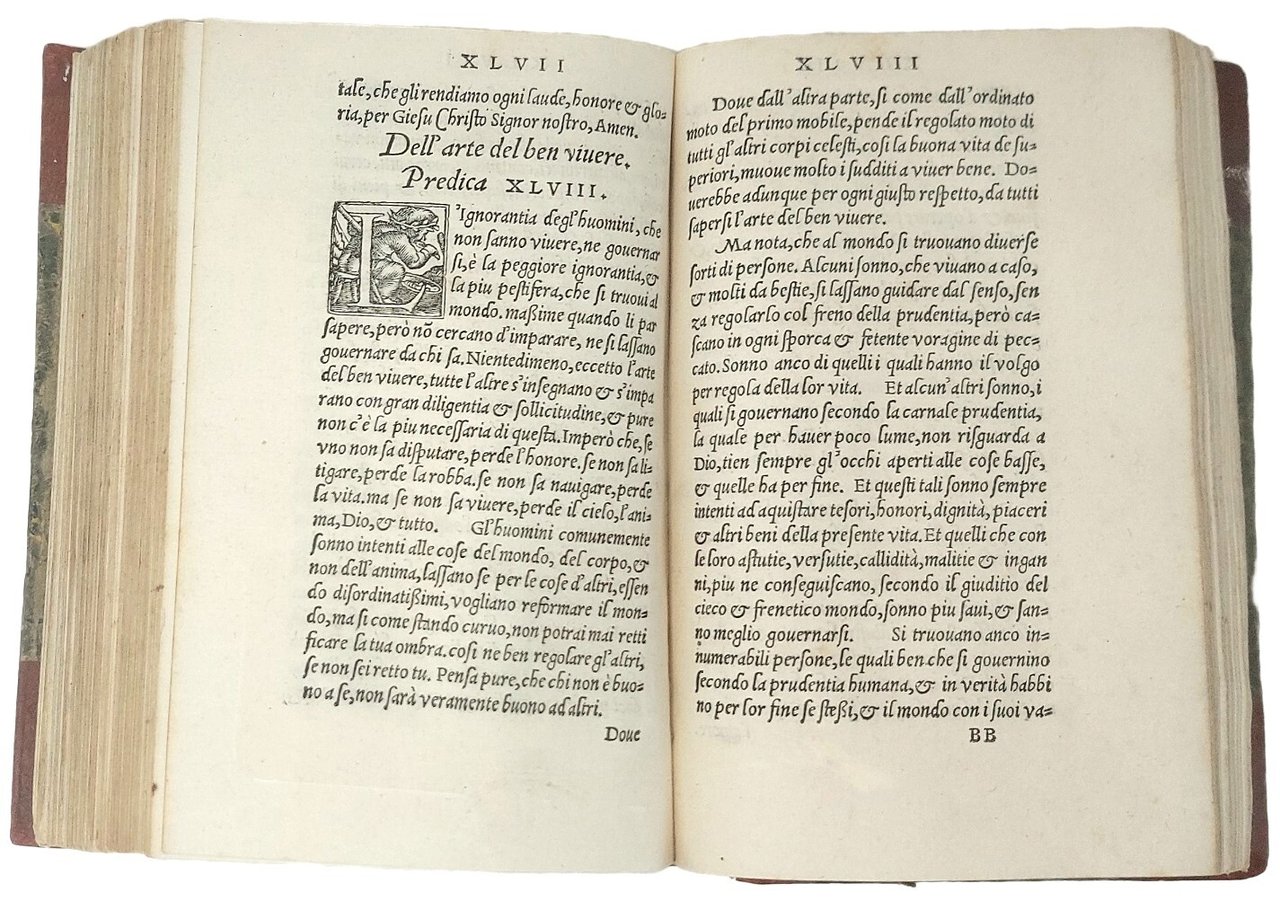 XLVII
tale, che gli rendiamo ogni laude, honore & glo-
ria, per Giesu Christo Signor nostro, Amen.
Dell'arte del ben viuere.
Predica XLVIII.
L'Ignorantia degl'huomini, che
non sanno viuere, ne gouernar
si, è la peggiore ignorantia, &
la piu pestifera, che si truoui al
mondo. maßime quando li par
sapere, però nõ cercano d'imparare, ne si lassano
gouernare da chi sa. Nientedimeno, eccetto l'arte
del ben viuere, tutte l'altre s'insegnano & s'impa
rano con gran diligentia & sollicitudine, & pure
non c'è la piu necessaria di questa. Imperò che, se
vno non sa disputare, perde l'honore. se non sa li-
tigare, perde la robba. se non sa nauigare, perde
la vita. ma se non sa viuere, perde il cielo, l'ani-
ma, Dio, & tutto. Gl'huomini comunemente
sonno intenti alle cose del mondo, del corpo, &
non dell'anima, lassano se per le cose d'altri, essen
do disordinatißimi, vogliano reformare il mon-
do, ma si come stando curuo, non potrai mai retti
ficare la tua ombra. cosi ne ben regolare gl'altri,
se non sei retto tu. Pensa pure, che chi non è buo-
no a se, non sarà veramente buono ad altri.
Doue
XLVIII
Doue dall'altra parte, si come dall'ordinato
moto del primo mobile, pende il regolato moto di
tutti gl'altri corpi celesti, cosi la buona vita de su-
periori, muoue molto i sudditi a viuer bene. Do-
uerebbe adunque per ogni giusto respetto, da tutti
sapersi l'arte del ben viuere.
Ma nota, che al mondo si truouano diuerse
sorti di persone. Alcuni sonno, che viuano a caso,
& molti da bestie, si lassano guidare dal senso, sen
za regolarlo col freno della prudentia, però ca-
scano in ogni sporca & fetente voragine di pec-
cato. Sonno anco di quelli i quali hanno il volgo
per regola della lor vita. Et alcun'altri sonno, i
quali si gouernano secondo la carnale prudentia,
la quale per hauer poco lume, non risguarda a
Dio, tien sempre gl'occhi aperti alle cose basse,
& quelle ha per fine. Et questi tali sonno sempre
intenti ad aquistare tesori, honori, dignità, piaceri
& altri beni della presente vita. Et quelli che con
le loro astutie, versutie, callidità, malitie & ingan
ni, piu ne conseguiscano, secondo il giuditio del
cieco & frenetico mondo, sonno piu saui, & san-
no meglio gouernarsi. Si truouano anco in-
numerabili persone, le quali ben che si gouernino
secondo la prudentia humana, & in verità habbi
no per lor fine se steßi, & il mondo con i suoi va-
BB